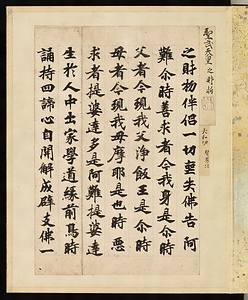 聖武天皇 之財物
之財物伴侶一切喪失佛告阿
難尒時善求者今我身是尒時
父者今現我父淨飯王是尒時
母者今現我母摩耶是也時惡
求者提婆達多是阿難提婆達
生於人中出家學道緣前鳥時
誦持四諦心自開解成辟支佛一